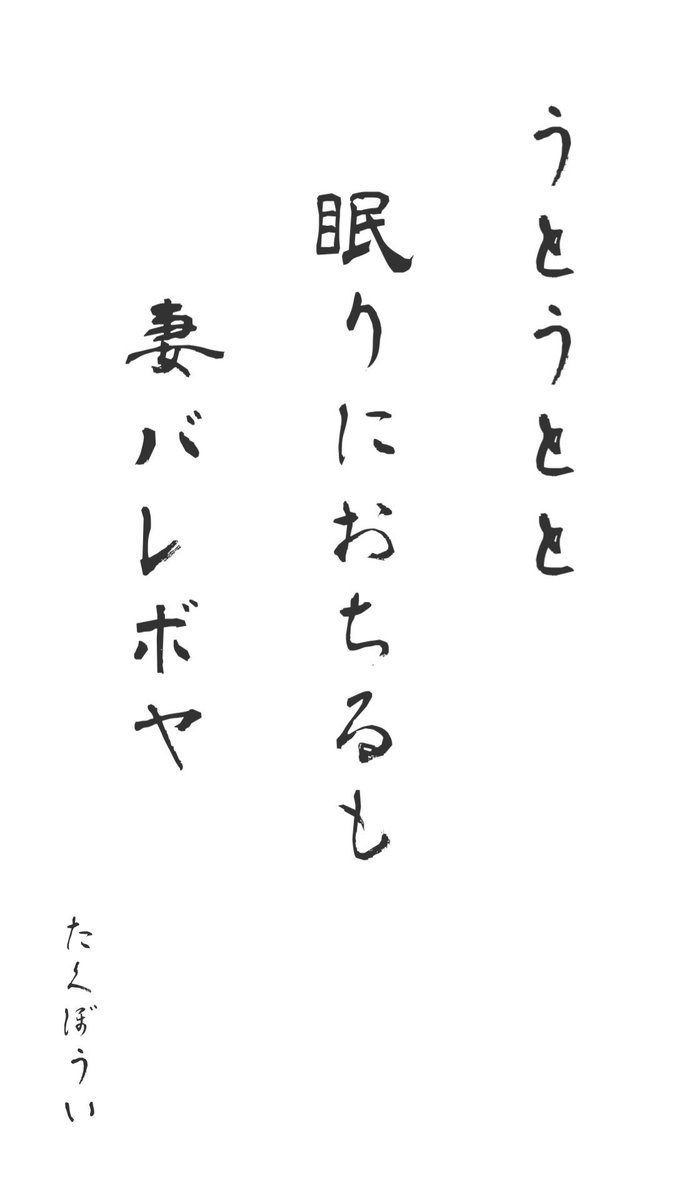 うとうとと
眠りにおちるも
妻バレボヤ
たくぼうい